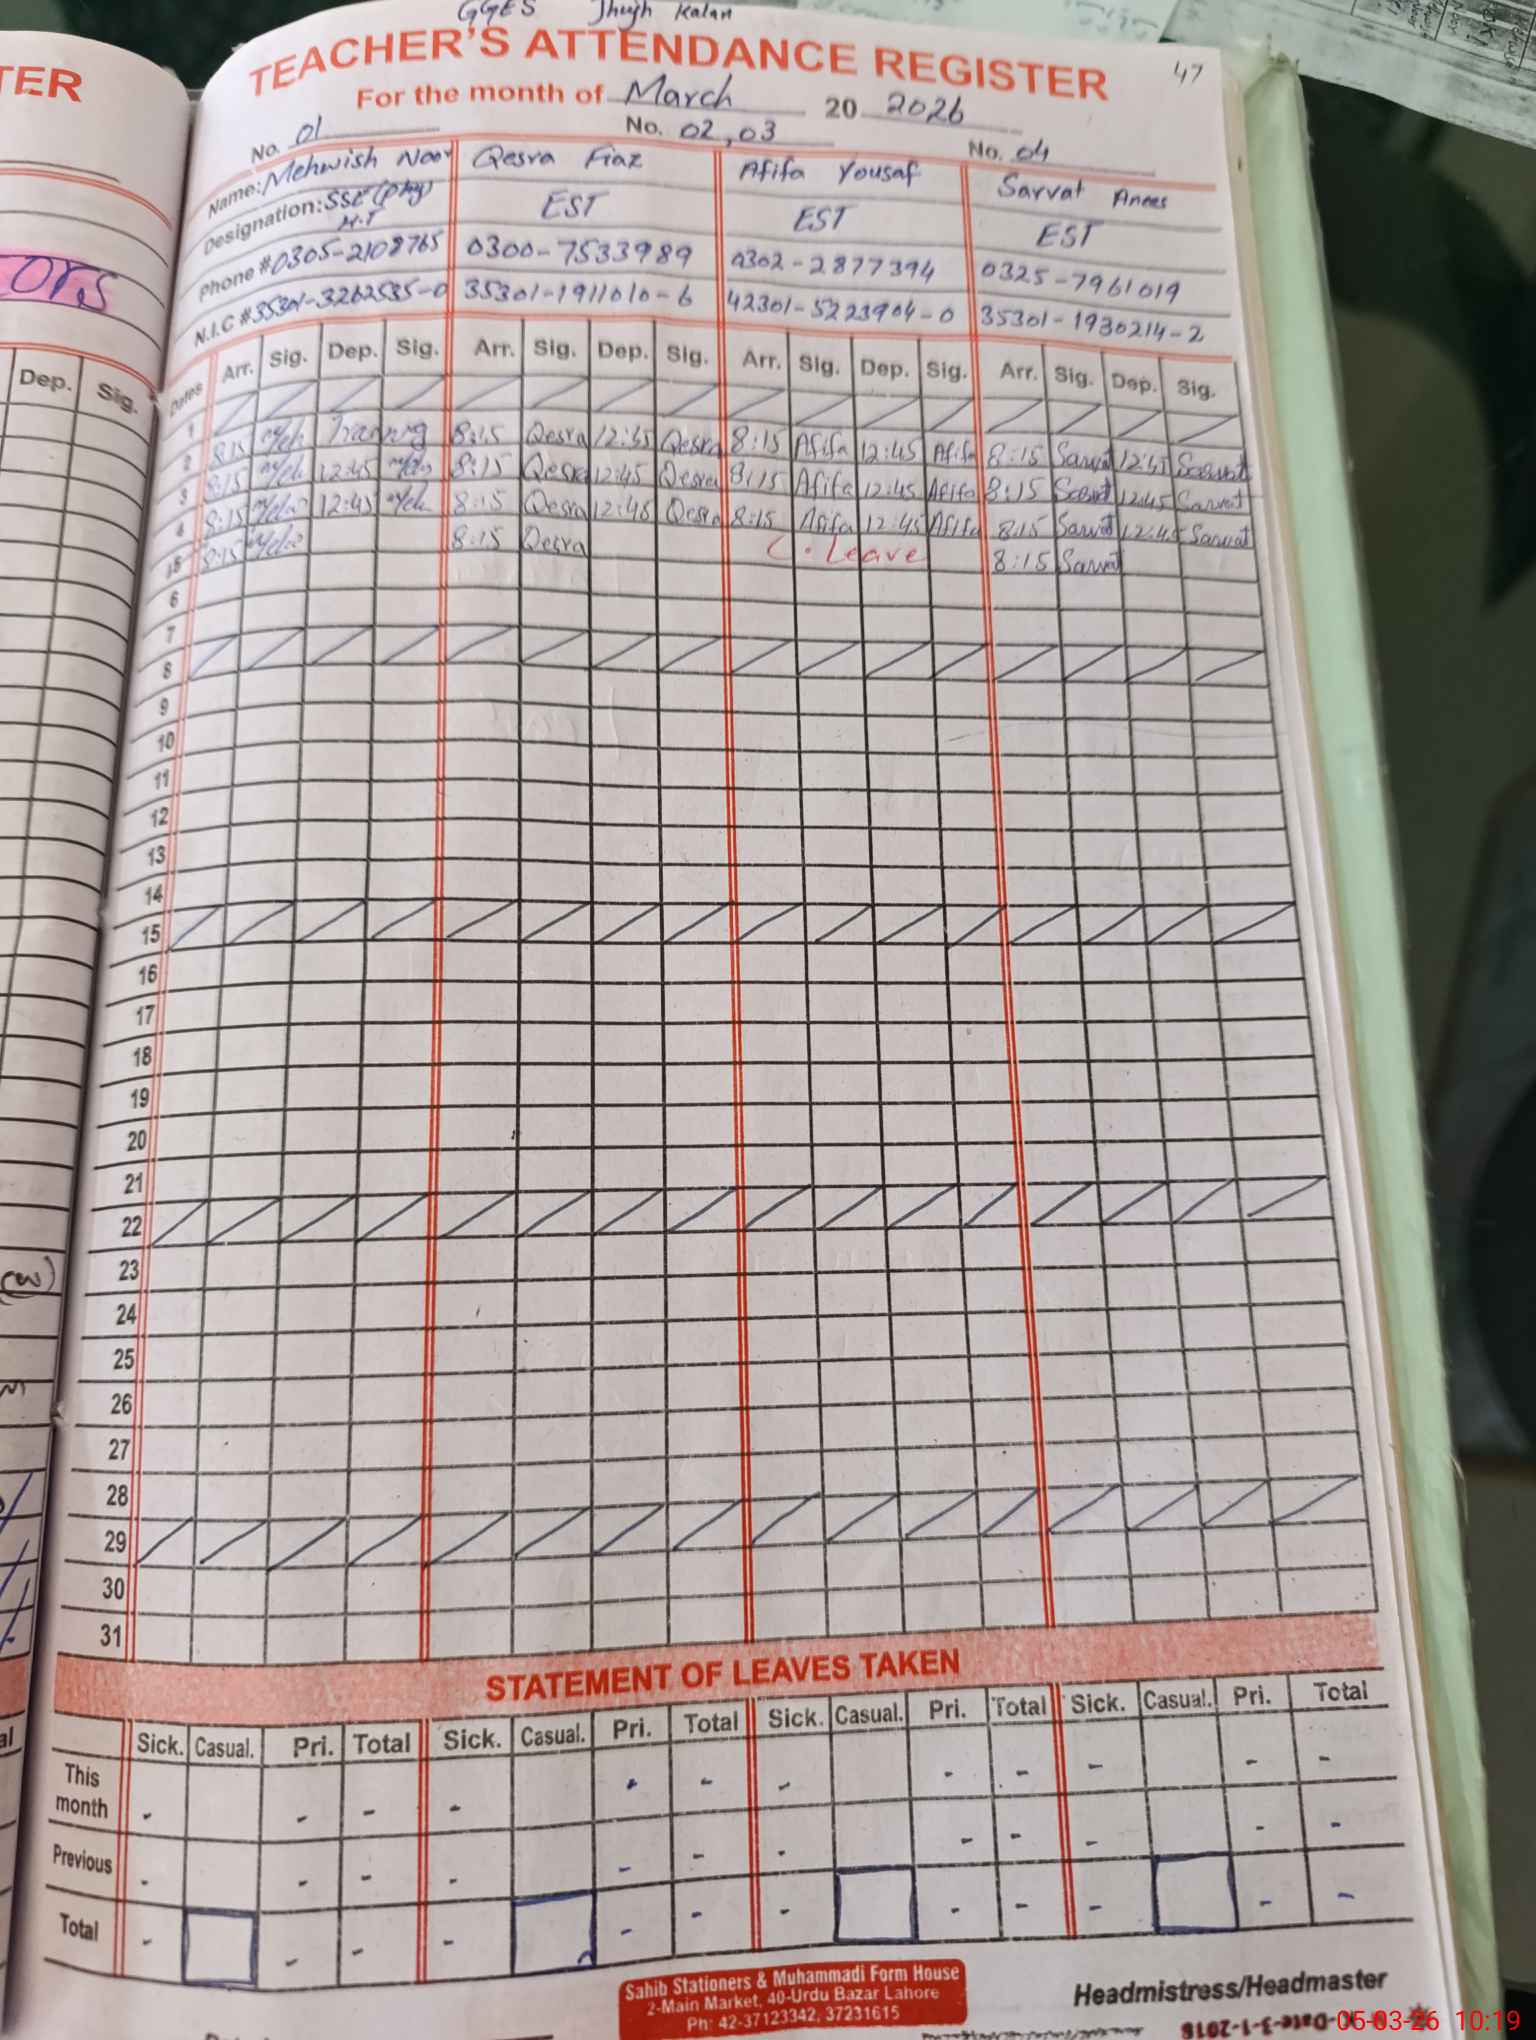 GGES Jhugh Kalan
TEACHER'S ATTENDANCE REGISTER
47
For the month of March 20 2026
No. 01 No. 02,03 No. 04
Name: Mehwish Noor Qesra Fiaz Afifa Yousaf Sarvat Anees
Designation: SSE (phy) EST EST EST
Phone # 0305-2108765 0300-7533989 0302-2877394 0325-7961019
N.I.C # 35301-3262535-0 35301-1911010-6 42301-5223904-0 35301-1930214-2
Dates Arr. Sig. Dep. Sig. Arr. Sig. Dep. Sig. Arr. Sig. Dep. Sig. Arr. Sig. Dep. Sig.
1
2 8:15 Meh Training 8:15 Qesra 12:45 Qesra 8:15 Afifa 12:45 Afifa 8:15 Sarvat 12:45 Sarvat
3 8:15 Meh 12:45 Meh 8:15 Qesra 12:45 Qesra 8:15 Afifa 12:45 Afifa 8:15 Sarvat 12:45 Sarvat
4 8:15 Meh 12:45 Meh 8:15 Qesra 12:45 Qesra 8:15 Afifa 12:45 Afifa 8:15 Sarvat 12:45 Sarvat
5 8:15 Meh 8:15 Qesra C. Leave 8:15 Sarvat
6
7
8
9
10
11
12
13
14
15
16
17
18
19
20
21
22
23
24
25
26
27
28
29
30
31
STATEMENT OF LEAVES TAKEN
Sick. Casual. Pri. Total Sick. Casual. Pri. Total Sick. Casual. Pri. Total Sick. Casual. Pri. Total
This month - - - - - - - - - - - -
Previous - - - - - - - - - - - -
Total - - - - - - - - - - - -
Sahib Stationers & Muhammadi Form House
2-Main Market, 40-Urdu Bazar Lahore
Ph: 42-37123342, 37231615
Headmistress/Headmaster
TER
Dep. Sig.
05-03-26 10:19